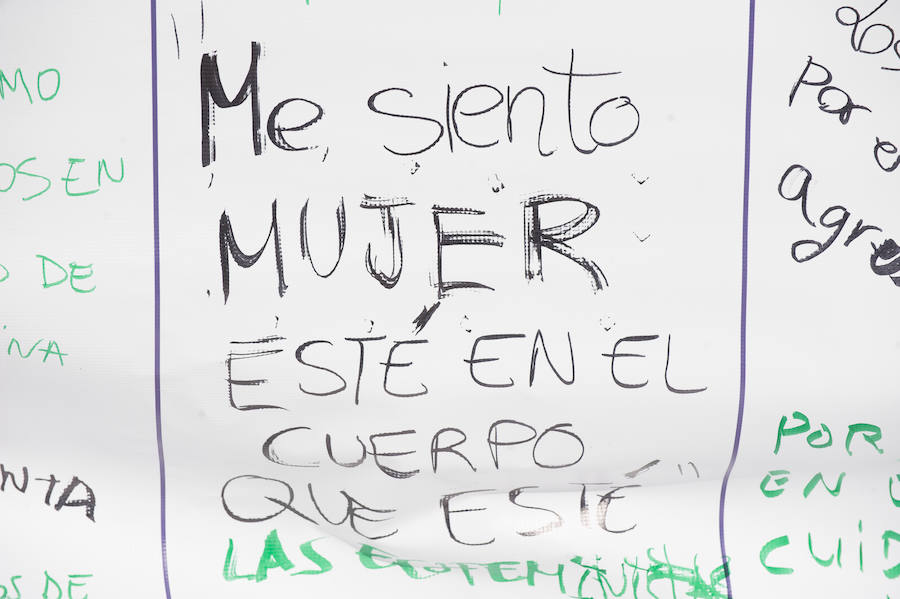 MO
OS EN
O DE
INA
NTA
OS DE
"Me siento
MUJER
ESTÉ EN EL
CUERPO
QUE ESTÉ"
LAS
Los
Por e
agres
POR
EN
CUID